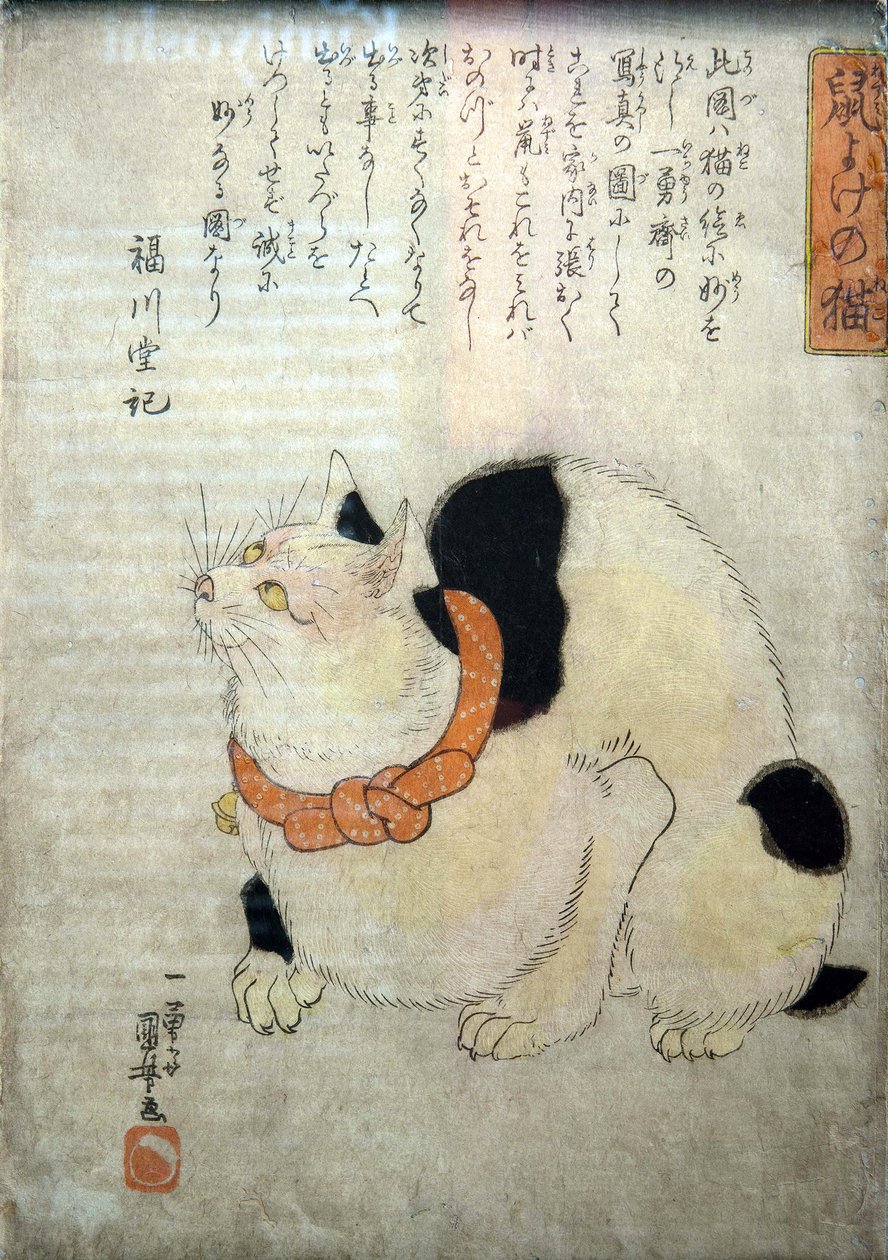 鼠よけの猫
此圖ハ猫の絵に妙を
得し一勇齋の
寫真の圖にして
これを家内に張おく
時にハ鼠もこれをみれバ
おのづとおそれをなし
次第にすくなくなりて
出る事なしたとへ
出るともいたづらを
けつしてせず誠に
妙なる圖なり
福川堂記
一勇斎
國芳画